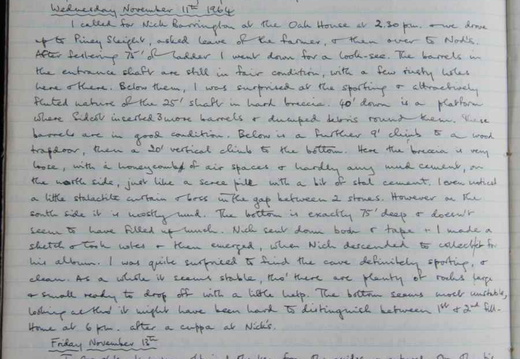 Wednesday November 11th 1964
I called for Nick Barrington at the Oak House at 2.30 p.m. & we drove
up to Piney Sleight, asked leave of the farmer, & then over to Nod's.
After tethering 75' of ladder I went down for a look-see. The barrels in
the entrance shaft are still in fair condition, with a few rusty holes
here & there. Below them, I was surprised at the sporting & attractively
fluted nature of the 25' shaft in hard breccia. 40' down is a platform
where Sidcot inserted 3 more barrels & dumped debris round them. These
barrels are in good condition. Below is a further 9' climb to a wood
trapdoor, then a 20' vertical climb to the bottom. Here the breccia is very
loose, with a honeycomb of air spaces & hardly any mud cement, on
the north side, just like a scree pill with a bit of stal cement. I even noticed
a little stalactite curtain & boss in the gap between 2 stones. However on the
south side it is mostly mud. The bottom is exactly 75' deep & doesn't
seem to have filled up much. Nick sent down book & tape & I made a
sketch & took notes & then emerged, when Nick descended to collect for
his album. I was quite surprised to find the cave definitely sporting, &
clean. As a whole it seems stable, tho' there are plenty of rocks large
& small ready to drop off with a little help. The bottom seems most unstable,
looking as tho' it might have been hard to distinguish between 1st & 2nd fill.
Home at 6 p.m. after a cuppa at Nick's.
Friday November 13th